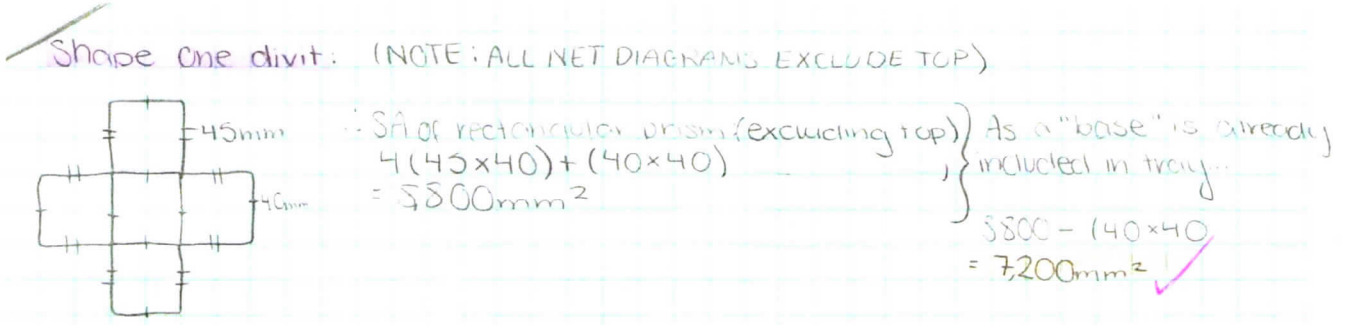 Shape one divit: (NOTE: ALL NET DIAGRAMS EXCLUDE TOP)
45mm
40mm
∴ SA of rectangular prism (excluding top)
4(45×40)+(40×40)
= 8800mm²
As a "base" is already
included in tray...
8800 - (40×40
= 7200mm²